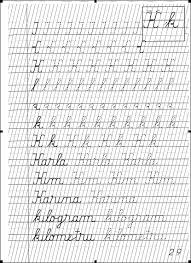 K k
K K K K K K K
k k k k k k k k k
K k K k K k K k
Karla Karla Karla
Kim Kim Kim Kim
Karina Karina
kilogram kilogram
kilometru kilometru
29